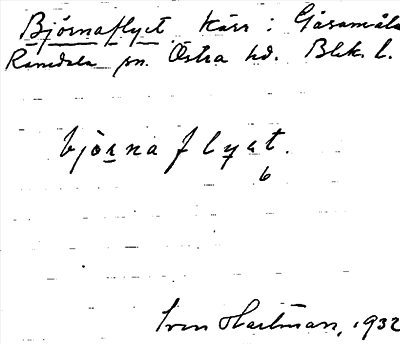 Björnaflyet Kärr i Gåsamåla
Ramdala sn. Östra hd. Blek. l.
bjòrna flyat.
6
Sven Hartman, 1932